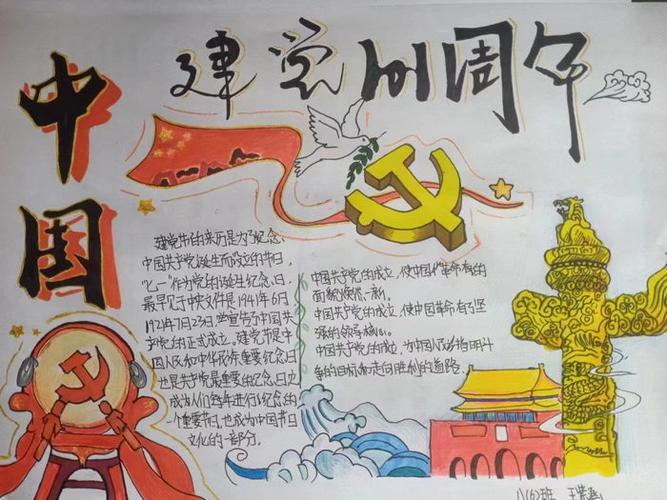 中国
建党101周年
建党节的来历是为了纪念
中国共产党诞生而设立的节日
"七一"作为党的诞生纪念日,
最早见于中央文件是1941年6月
1921年7月23日,党宣告中国共
产党的正式成立。建党节是中
国人民和中华民族重要纪念日
也是共产党最重要的纪念日之
成为人们每年进行纪念的
一个重要节日,也成为中国节日
文化的一部分。
中国共产党的成立,使中国革命有的
面貌焕然一新。
中国共产党的成立,使中国革命有了坚
强的领导核心。
中国共产党的成立,为中国人民指明斗
争的目标和走向胜利的道路。
八(6)班 王